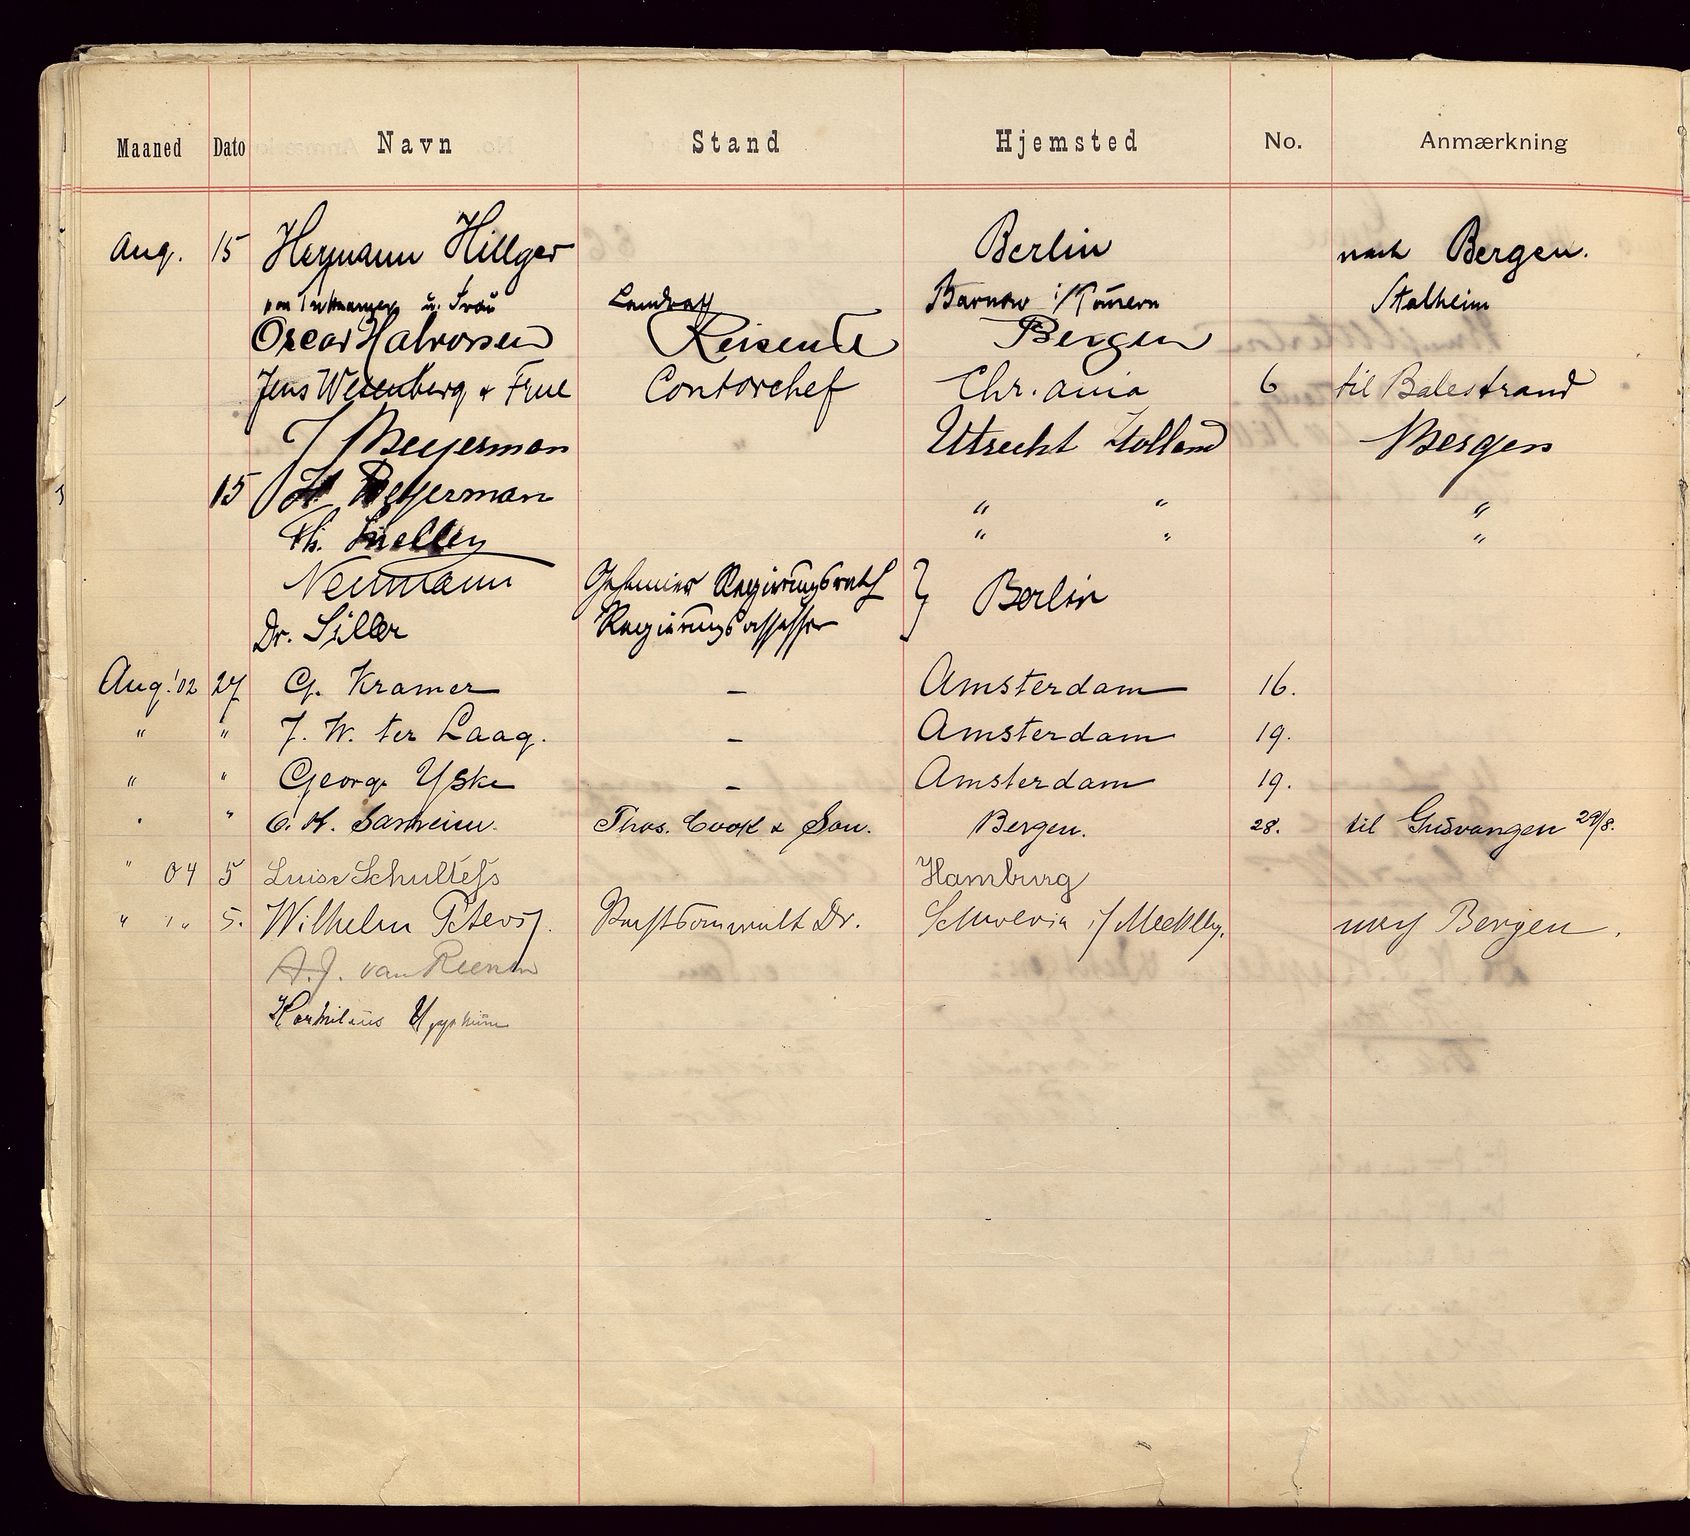 Maaned Dato Navn Stand Hjemsted No. Anmærkning
Aug. 15 Hermann Hillger Berlin nach Bergen.
von u. Frau Landrath Barnow i/Pomern Stalheim
Oscar Halvorsen Reisende Bergen
Jens Wesenberg & Frue Contorchef Chr.ania 6 til Balestrand
J Beyerman " Utrecht Holland Bergen
15 H Beyerman " " "
Th. Snellen " " "
Neumann Geheimer Regierungsrath } Berlin
Dr. Siller Regierungsassessor
Aug. '02 27 G. Kramer — Amsterdam 16.
" " J. W. ter Laag. — Amsterdam 19.
" " George Yske — Amsterdam 19.
" " C. H. Thos. Cook & Son. Bergen. 28. til Gudvangen 29/8.
" 04 5 Luise Schultess Hamburg
" " 5. Wilhelm Peters Rechtsanwalt Dr. Schwerin i/ Mecklbg. nach Bergen.
A. J. van Reenen
Kornilius